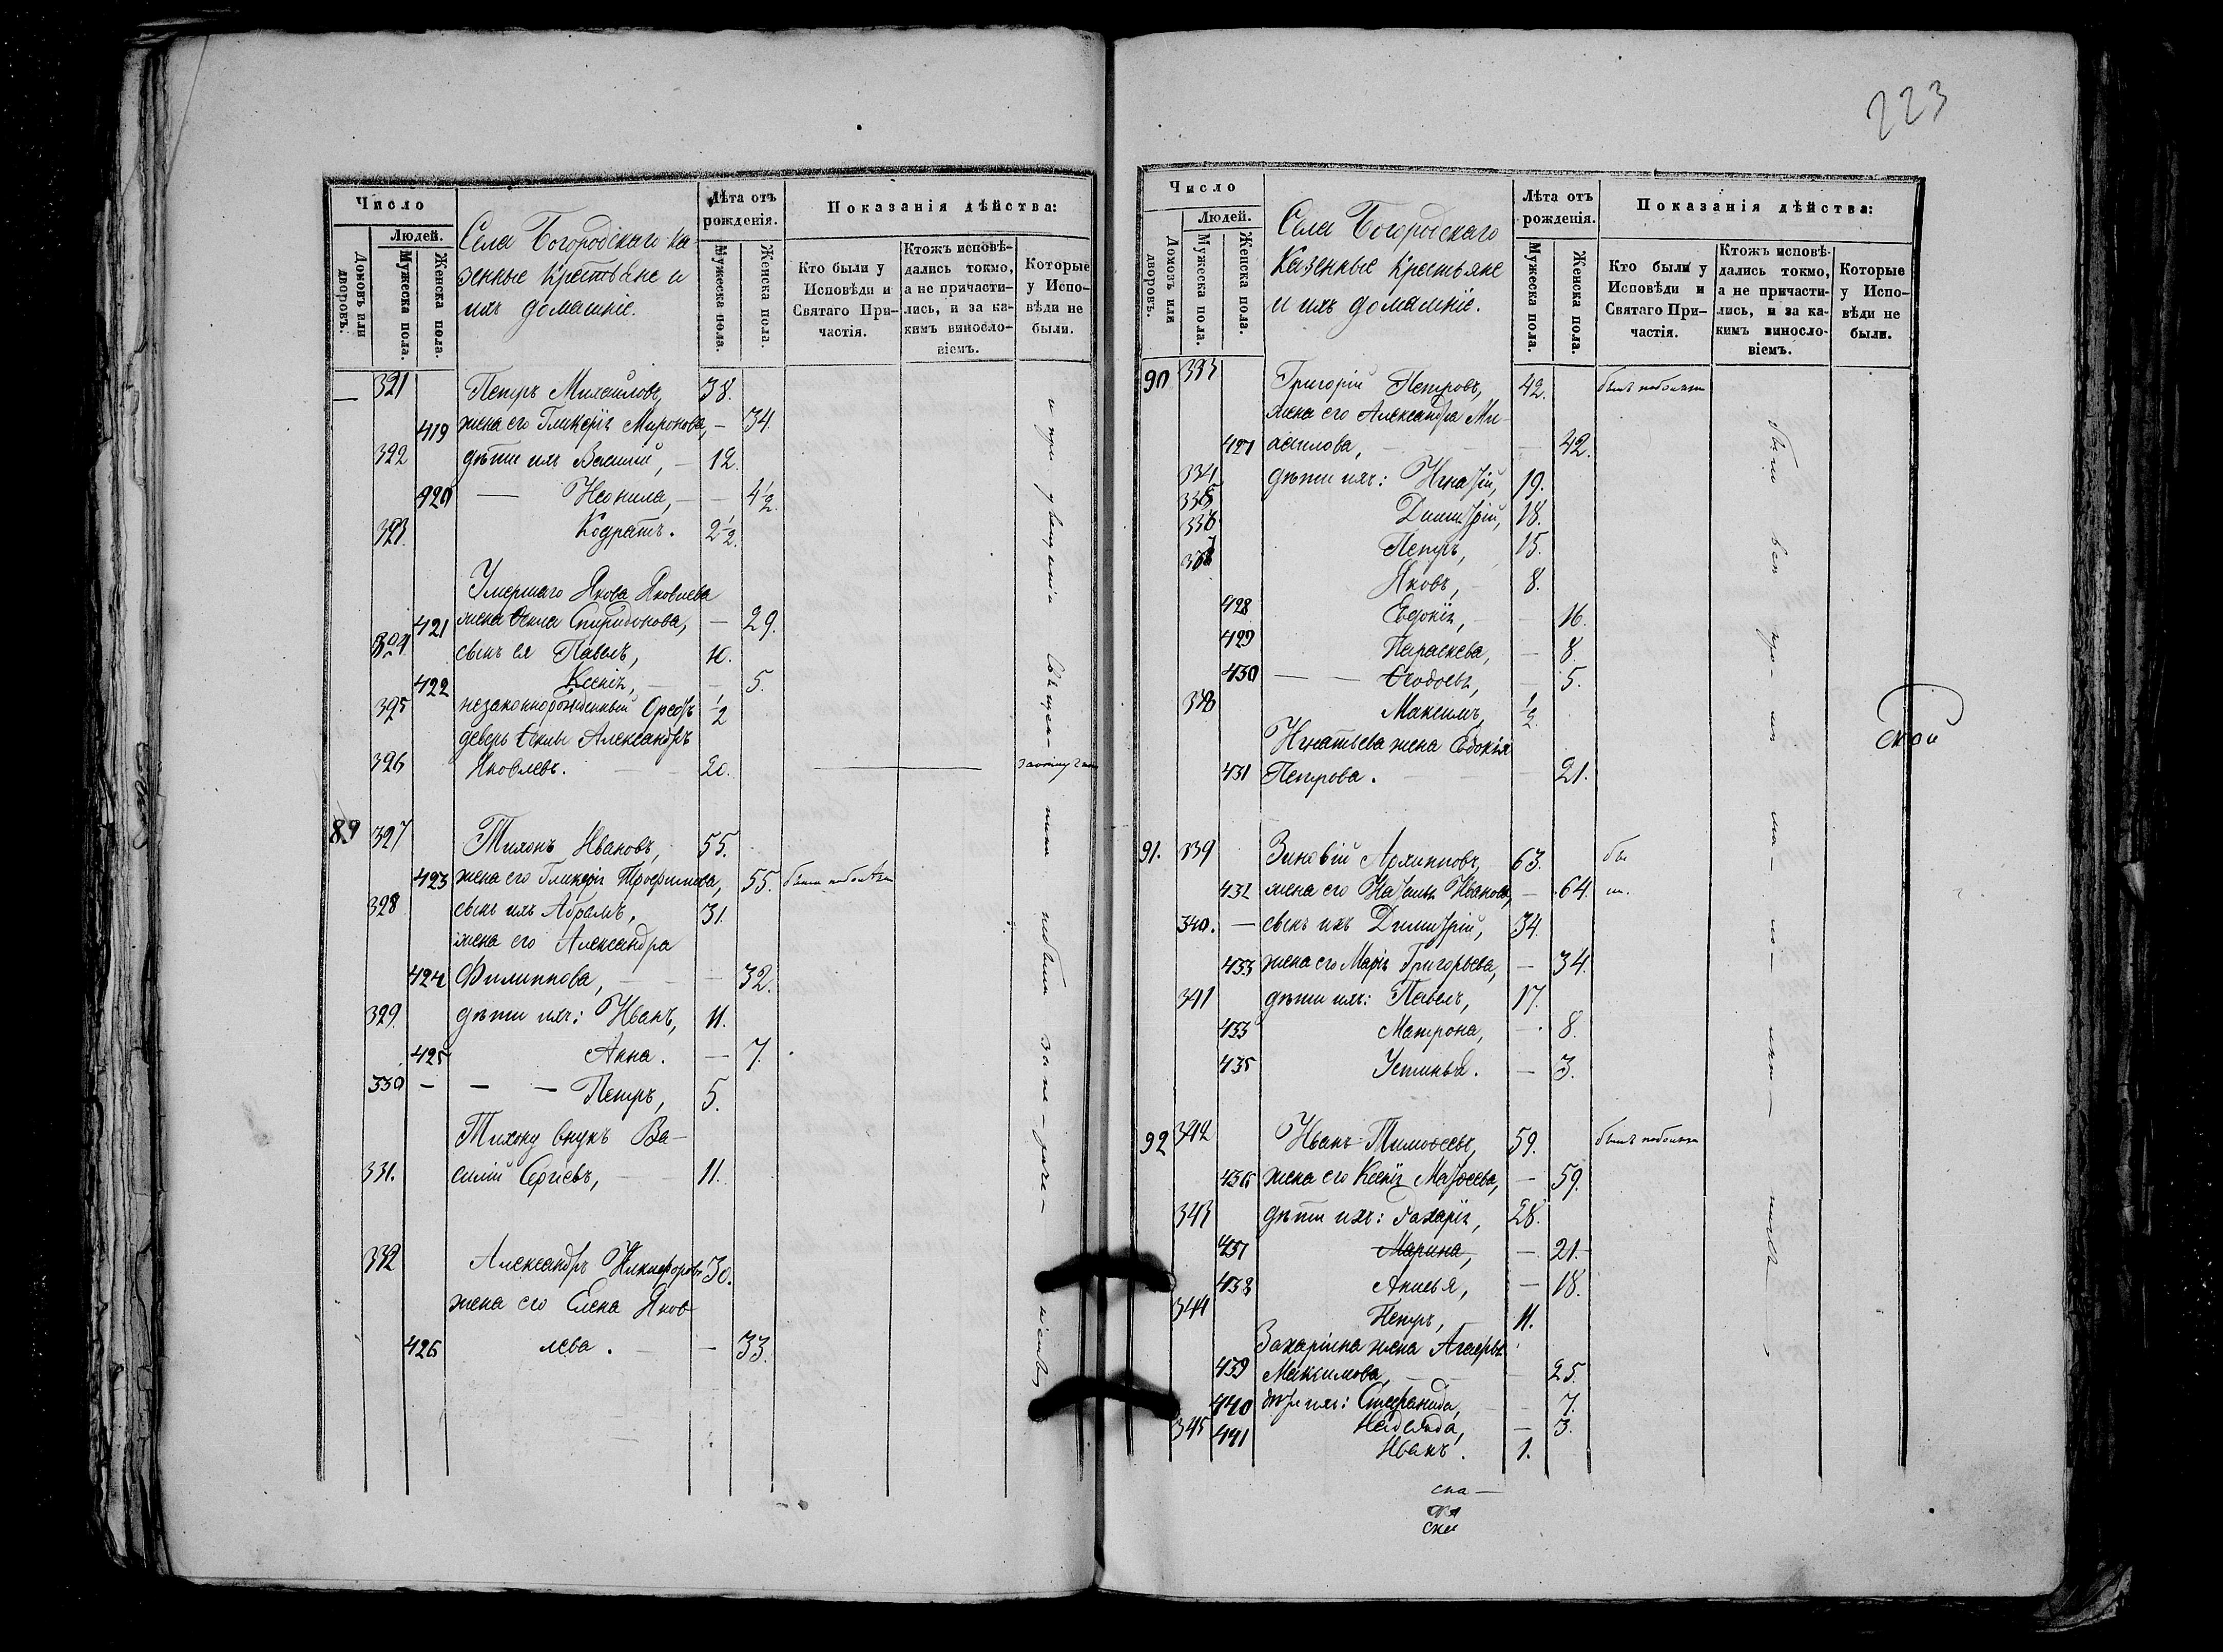 223
Число
Людей.
Домовъ или дворовъ.
Мужеска пола.
Женска пола.
Села Богородскаго ка-
зенные крестьяне и
ихъ домашніе.
Лѣта отъ рожденія.
Мужеска пола.
Женска пола.
Показанія дѣйства:
Кто были у Исповѣди и Святаго При-частія.
Ктожъ исповѣ-дались токмо, а не причасти-лись, и за ка-кимъ винносло-віемъ.
Которые у Испо-вѣди не были.
— 321 Петръ Михайловъ, 38.
419 жена его Гликерія Миронова, — 34.
322 дѣти ихъ Василій, — 12.
420 — Неонила, — — 4½.
323. Кодратъ. 2½.
Умершаго Якова Яковлева
421 жена Ѳекла Спиридонова, — 29.
324 сынъ ея Павелъ, 10.
422 Ксенія, — — 5.
325 незаконнорожденный Орестъ ½
деверь Ѳеклы Александръ
326 Яковлевъ. — — 20.
89 327 Тихонъ Ивановъ, 55.
423 жена его Гликерія Трофимова, 55.
328 сынъ ихъ Абрамъ, 31.
жена его Александра
424 Филиппова, — — — 32.
329. дѣти ихъ: Иванъ, 11.
425 Анна. — 7.
330 — — — Петръ, 5.
Тихону внукъ Ва-
331. силій Сергѣевъ, — — 11.
332 Александръ Никифоровъ 30.
жена его Елена Яков-
426 лева. — — 33.
Число
Людей.
Домовъ или дворовъ.
Мужеска пола.
Женска пола.
Села Богородскаго
Казенные крестьяне
и ихъ домашніе.
Лѣта отъ рожденія.
Мужеска пола.
Женска пола.
Показанія дѣйства:
Кто были у Исповѣди и Святаго При-частія.
Ктожъ исповѣ-дались токмо, а не причасти-лись, и за ка-кимъ винносло-віемъ.
Которые у Испо-вѣди не были.
90 333 Григорій Петровъ, 42.
жена его Александра Ми-
427 хаилова, — — — 42.
334 дѣти ихъ: Игнатій, 19.
335 Димитрій, 18.
336 Петръ, 15.
337 Яковъ, — 8.
428 Евдокія, — — 16.
429 Параскева, — 8.
430 — — Ѳеодосья, — 5.
338 Максимъ, ½.
Игнатьева жена Евдокія
431 Петрова. — — — 21.
91. 339 Зиновій Архипповъ, 63.
432 жена его Наталья Иванова, — 64.
340. — сынъ ихъ Димитрій, 34.
433 жена его Марія Григорьева, — 34.
341 дѣти ихъ: Павелъ, 17.
Матрона, — 8.
435 Устинья. — 3.
92 342 Иванъ Тимоѳеевъ, 59.
436 жена его Ксенія Матѳеева, — 59.
343 дѣти ихъ: Захарія, 28.
437 Марина, — 21.
438 Анисья, — 18.
344 Петръ, 11.
Захаріина жена Агафья
439 Максимова, — — — 25.
440 дѣти ихъ: Стефанида, — 7.
345 441 — 3.
Иванъ. 1.
ской